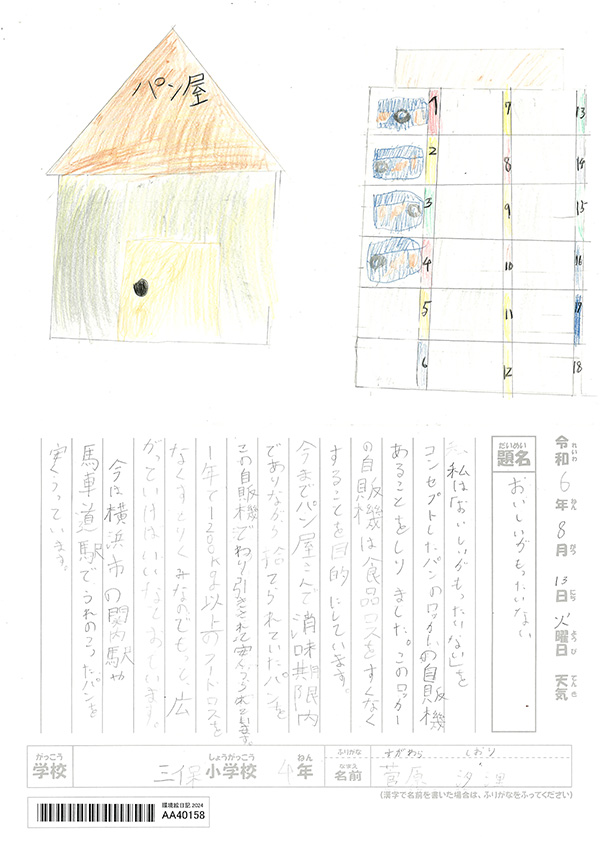 パン屋
1
2
3
4
5
6
7
8
9
10
11
12
13
14
15
16
17
18
令和6年8月13日火曜日 天気
れいわ ねん がつ にち ようび てんき
だいめい
題名
おいしいがもったいない
私は「おいしいがもったいない」を
コンセプトしたパンのロッカーの自販機
あることをしりました。このロッカー
の自販機は食品ロスをすくなく
することを目的にしています。
今までパン屋さんで消味期限内
でありながら捨てられていたパンを
この自販機でわり引きされて安くうられています。
1年で1200kg以上のフードロスを
なくすとりくみなのでもっと、広
がっていけばいいなと思っています。
今は横浜市の関内駅や
馬車道駅でうれのこったパンを
安くうっています。
がっこう
学校
三保小学校 4年
しょうがっこう ねん
ふりがな
すがわら しおり
なまえ
名前
菅原 汐里
(漢字で名前を書いた場合は、ふりがなをふってください)
環境絵日記 2024
AA40158